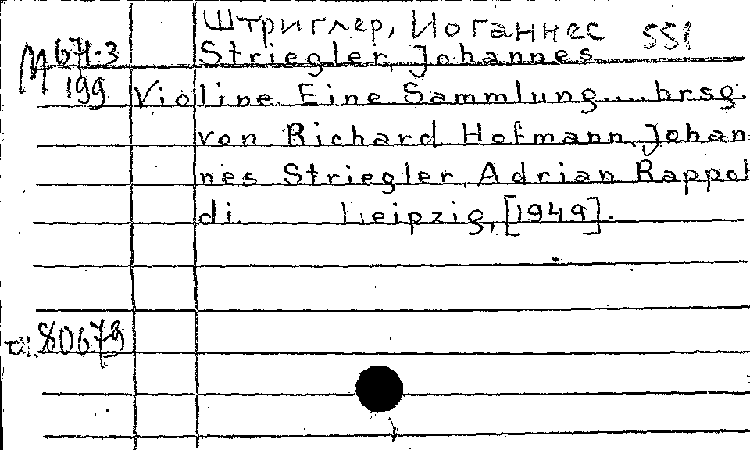 Штриглер, Иоганнес 551
М 671-3 Striegler, Johannes
199 Violine. Eine Sammlung... hrsg.
von Richard Hofmann, Johan-
nes Striegler, Adrian Rappol-
di. Leipzig, [1949].
80679